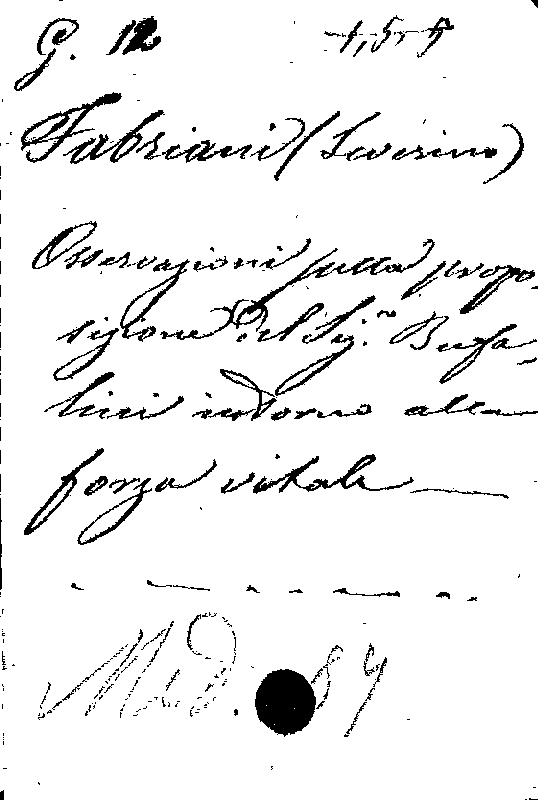 G. 12
Fabriani (Severino)
Osservazioni sulla propo-
sizione del Sig.re Bufa-
lini intorno alla
forza vitale
Med. 84